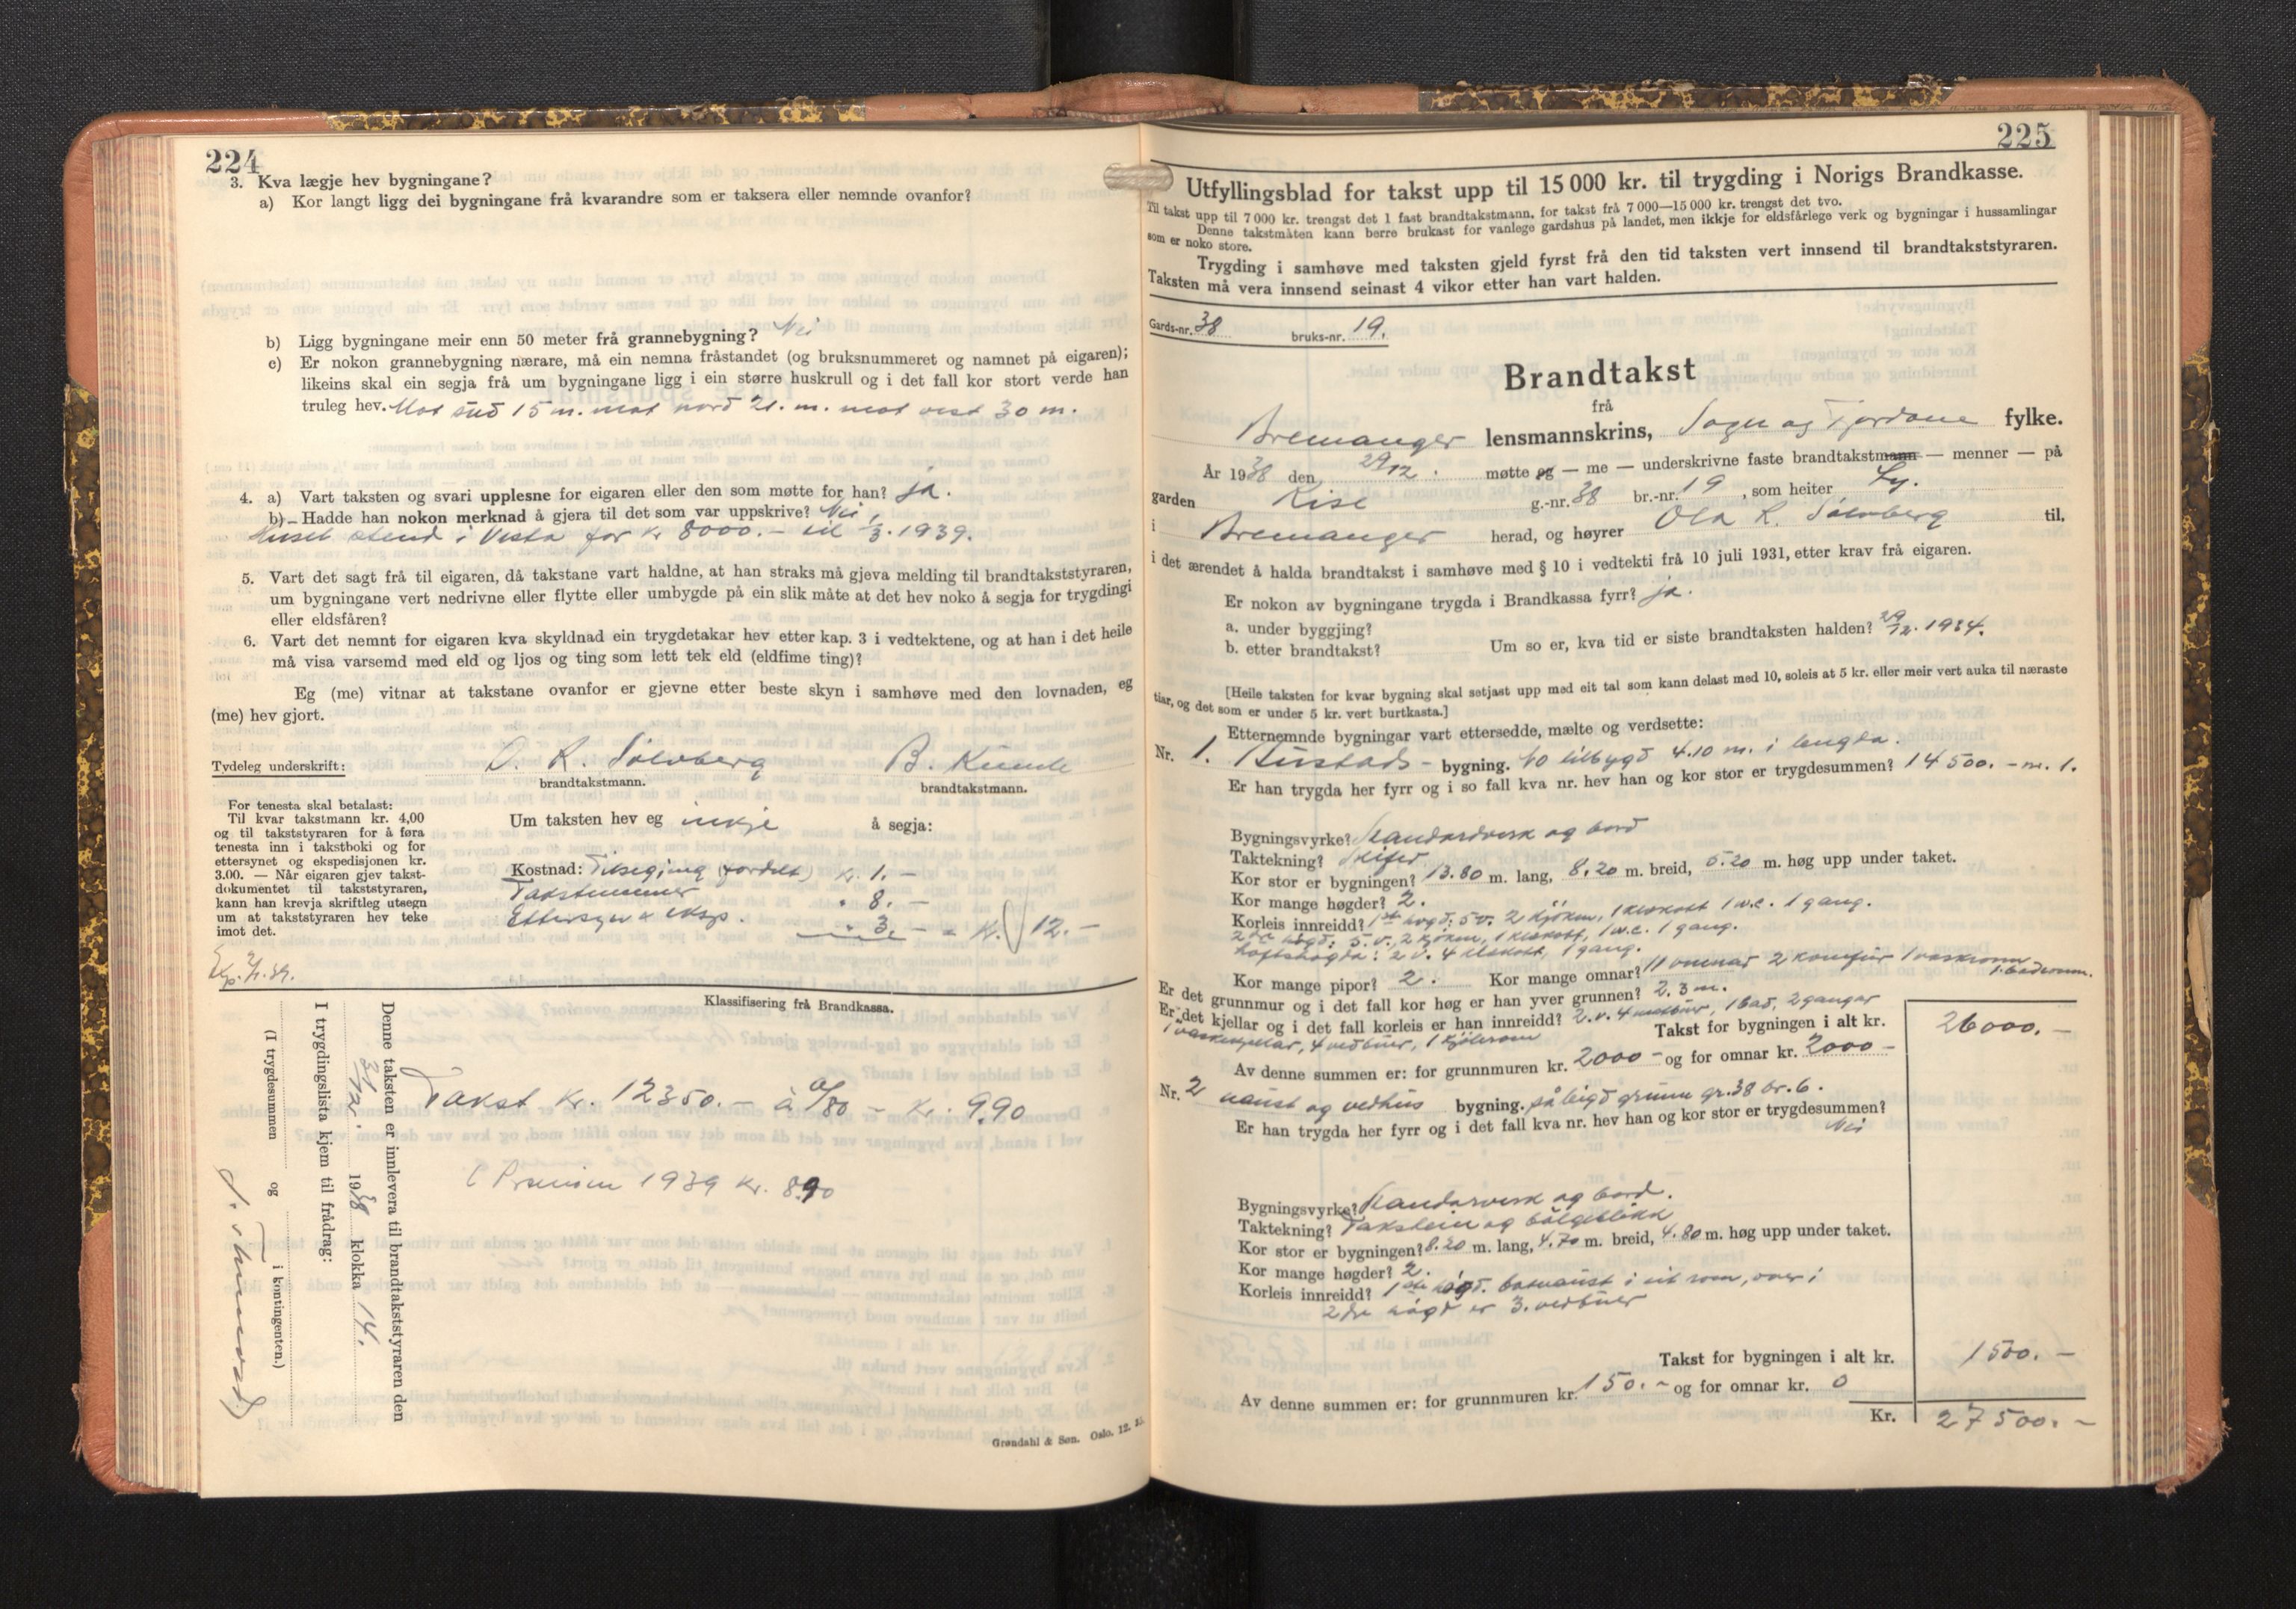 224
3. Kva lægje hev bygningane?
a) Kor langt ligg dei bygningane frå kvarandre som er taksera eller nemnde ovanfor?
b) Ligg bygningane meir enn 50 meter frå grannebygning? Nei
c) Er nokon grannebygning nærare, må ein nemna fråstandet (og bruksnummeret og namnet på eigaren);
likeins skal ein segja frå um bygningane ligg i ein større huskrull og i det fall kor stort verde han
truleg hev. Mot süd 15 m. mot nord 21. m. mot vest 30 m.
4. a) Vart taksten og svari upplesne for eigaren eller den som møtte for han? ja.
b) Hadde han nokon merknad å gjera til det som var uppskrive? Nei,
Huset stend i Vesta for kr 8000.- til 1/3. 1939.
5. Vart det sagt frå til eigaren, då takstane vart haldne, at han straks må gjeva melding til brandtakststyraren,
um bygningane vert nedrivne eller flytte eller umbygde på ein slik måte at det hev noko å segja for trygdingi
eller eldsfåren?
6. Vart det nemnt for eigaren kva skyldnad ein trygdetakar hev etter kap. 3 i vedtektene, og at han i det heile
må visa varsemd med eld og ljos og ting som lett tek eld (eldfime ting)?
Eg (me) vitnar at takstane ovanfor er gjevne etter beste skyn i samhøve med den lovnaden, eg
(me) hev gjort.
Tydeleg underskrift: O. R. Solvberg B. Künde
brandtakstmann. brandtakstmann.
For tenesta skal betalast:
Til kvar takstmann kr. 4,00
og til takststyraren for å føra
tenesta inn i takstboki og for
ettersynet og ekspedisjonen kr.
3.00. — Når eigaren gjev takst-
dokumentet til takststyraren,
kann han krevja skriftleg utsegn
um at takststyraren hev teke
imot det.
Um taksten hev eg inkje å segja:
Kostnad: Tilsegjing (fordelt) kr. 1.-
Takstmenner " 8.-
Ettersyn & eksp. " 3.- = Kr. 12.-
Exp. 2/1.39.
Klassifisering frå Brandkassa.
Takst kr. 12350.- à 0/80 - kr. 9.90
( Premien 1939 kr. 8.90
Denne taksten er innlevera til brandtakststyraren den
31/12. 1938 klokka 14.
I trygdingslista kjem til frådrag:
(I trygdesummen og i kontingenten.)
Grøndahl & Søn. Oslo. 12.
225
Utfyllingsblad for takst upp til 15 000 kr. til trygding i Norigs Brandkasse.
Til takst upp til 7 000 kr. trengst det 1 fast brandtakstmann, for takst frå 7 000—15 000 kr. trengst det tvo.
Denne takstmåten kann berre brukast for vanlege gardshus på landet, men ikkje for eldsfårlege verk og bygningar i hussamlingar
som er noko store.
Trygding i samhøve med taksten gjeld fyrst frå den tid taksten vert innsend til brandtakststyraren.
Taksten må vera innsend seinast 4 vikor etter han vart halden.
Gards-nr. 38 bruks-nr. 19.
Brandtakst
frå
Bremanger lensmannskrins, Sogn og Fjordane fylke.
År 1938 den 29/12. møtte eg — me — underskrivne faste brandtakstmann — menner — på
garden Kise g.-nr. 38 br.-nr. 19, som heiter Ly.
i Bremanger herad, og høyrer Ola R. Solvberg til,
i det ærendet å halda brandtakst i samhøve med § 10 i vedtekti frå 10 juli 1931, etter krav frå eigaren.
Er nokon av bygningane trygda i Brandkassa fyrr? ja.
a. under byggjing?
b. etter brandtakst? Um so er, kva tid er siste brandtaksten halden? 29/12. 1934.
[Heile taksten for kvar bygning skal setjast upp med eit tal som kann delast med 10, soleis at 5 kr. eller meir vert auka til næraste
tiar, og det som er under 5 kr. vert burtkasta.]
Etternemnde bygningar vart ettersedde, mælte og verdsette:
Nr. 1. Bustads - bygning. No tilbygd 4.10 m. i lengda.
Er han trygda her fyrr og i so fall kva nr. hev han og kor stor er trygdesummen? 14500.- nr. 1.
Bygningsvyrke? Standardverk og bord
Taktekning? Skifer
Kor stor er bygningen? 13.80 m. lang, 8.20 m. breid, 5.20 m. høg upp under taket.
Kor mange høgder? 2.
Korleis innreidd? 1ste høgd: 5 v. 2 kjøken, 1 kleskott 1 w.c. 1 gang.
2dre høgd: 5. v., 2 kjøken, 1 kleskott, 1 w.c. 1 gang.
Loftshøgda: 2 v. 4 kleskott, 1 gang.
Kor mange pipor? 2. Kor mange omnar? 11 omnar 2 komfür 1 vaskeomn 1. badeomn.
Er det grunnmur og i det fall kor høg er han yver grunnen? 2.3 m.
Er det kjellar og i det fall korleis er han innreidd? 2. v. 4 matbüer, 1 bad, 2 gangar
1 vaskekjellar, 4 vedbüer, 1 kjølerom
Takst for bygningen i alt kr. 26000.-
Av denne summen er: for grunnmuren kr. 2000- og for omnar kr. 2000-
Nr. 2 naust og vedhus bygning. på leigd grunn gr. 38 br. 6.
Er han trygda her fyrr og i det fall kva nr. hev han og kor stor er trygdesummen?
Nei
Bygningsvyrke? Standarverk og bord.
Taktekning? Takstein og bølgeblikk
Kor stor er bygningen? 8.20 m. lang, 4.70 m. breid, 4.80 m. høg upp under taket.
Kor mange høgder? 2.
Korleis innreidd? 1ste høgd. batnaust i eit rom, over i
2dre høgd er 3. vedbüer
Takst for bygningen i alt kr. 1500.-
Av denne summen er: for grunnmuren kr. 150.- og for omnar kr. 0
Kr. 27500.-